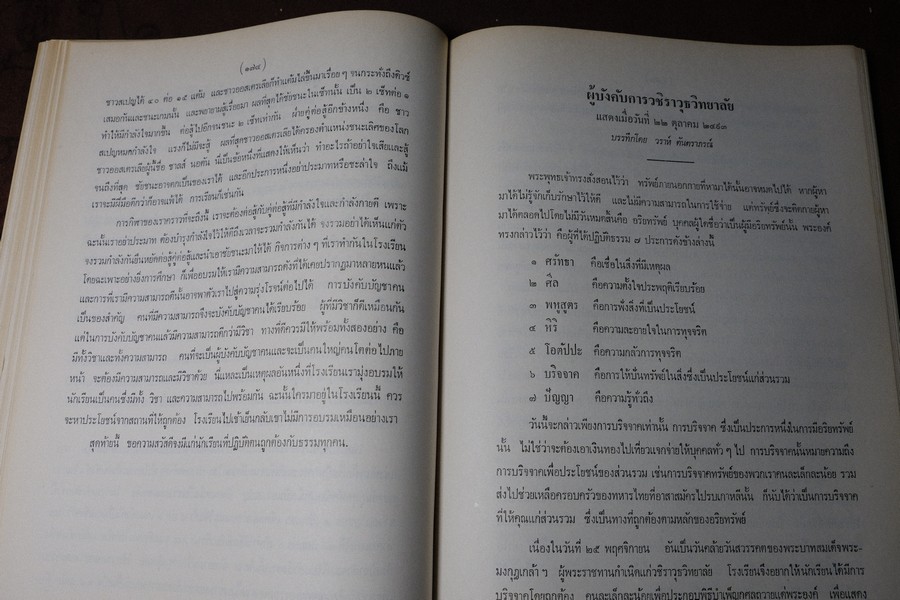 (๑๗๙)
ชาวสเปญได้ ๔๐ ต่อ ๑๕ แต้ม และชาวออสเตรเลียก็ทำแต้มไล่ขึ้นมาเรื่อย ๆ จนกระทั่งถึงดิวซ์
เสมอกันและชนะเกมนั้น และพยายามสู้เรื่อยมา ผลที่สุดได้ชัยชนะในเซ็ทนั้น เป็น ๒ เซ็ทต่อ ๑
ทำให้มีกำลังใจมากขึ้น ต่อสู้ไปอีกจนชนะ ๒ เซ็ทเท่ากัน ฝ่ายคู่ต่อสู้อีกข้างหนึ่ง คือ ชาว
สเปญหมดกำลังใจ แรงก็ไม่มีจะสู้ ผลที่สุดชาวออสเตรเลียได้ครองตำแหน่งชนะเลิศของโลก
ชาวออสเตรเลียผู้นี้ชื่อ นี่เป็นข้อหนึ่งที่แสดงให้เห็นว่า ทำอะไรถ้าอย่าใจเสียและสู้
จนถึงที่สุด ชัยชนะอาจตกเป็นของเราได้ และอีกประการหนึ่งอย่าประมาทหรือชะล่าใจ ถึงแม้
เราจะมีฝีมือดีกว่าก็อาจแพ้ได้ การเรียนก็เช่นกัน
การกีฬาของเราคราวที่จะถึงนี้ เราจะต้องต่อสู้กับคู่ต่อสู้ที่มีกำลังใจและกำลังกายดี เพราะ
ฉะนั้นเราอย่าประมาท ต้องบำรุงกำลังใจไว้ให้ดีถึงเวลาจะรวมกำลังกันได้ จงรวมอย่าได้เห็นแก่ตัว
จงรวมกำลังกันยืนหยัดต่อสู้คู่ต่อสู้และนำเอาชัยชนะมาให้ได้ กิจการต่าง ๆ ที่เราทำกันในโรงเรียน
โดยฉะเพาะอย่างยิ่งการศึกษา ก็เพื่ออบรมให้เรามีความสามารถดังที่ได้เคยปรากฏมาหลายหนแล้ว
และการที่เรามีความสามารถดีนั้นอาจพาตัวเราไปสู่ความรุ่งโรจน์ต่อไปได้ การบังคับบัญชาคน
เป็นของสำคัญ คนที่มีความสามารถจึงจะบังคับบัญชาคนได้เรียบร้อย ผู้ที่มีวิชาก็ดีเหมือนกัน
แต่ในการบังคับบัญชาคนแล้วมีความสามารถดีกว่ามีวิชา ทางที่ดีควรมีให้พร้อมทั้งสองอย่าง คือ
มีทั้งวิชาและทั้งความสามารถ คนที่จะเป็นผู้บังคับบัญชาคนและจะเป็นคนใหญ่คนโตต่อไปภาย
หน้า จะต้องมีความสามารถและมีวิชาด้วย นี่แหละเป็นเหตุผลอันหนึ่งที่โรงเรียนเรามุ่งอบรมให้
นักเรียนเป็นคนซึ่งมีทั้ง วิชา และความสามารถไปพร้อมกัน ฉะนั้นใครมาอยู่ในโรงเรียนนี้ ควร
จะหาประโยชน์จากสถานที่ให้ถูกต้อง โรงเรียนไปเช้าเย็นกลับเขาไม่มีการอบรมเหมือนอย่างเรา
สุดท้ายนี้ ขอความสวัสดีจงมีแก่นักเรียนที่ปฏิบัติตนถูกต้องกับธรรมทุกคน.
ผู้บังคับการวชิราวุธวิทยาลัย
แสดงเมื่อวันที่ ๒๒ ตุลาคม ๒๔๙๓
บรรทึกโดย วราห์ ตันตราภรณ์
พระพุทธเจ้าทรงสั่งสอนไว้ว่า ทรัพย์ภายนอกกายที่หามาได้นั้นอาจหมดไปได้ หากผู้หา
มาได้ไม่รู้จักเก็บรักษาไว้ให้ดี และไม่มีความสามารถในการใช้จ่าย แต่ทรัพย์ซึ่งจะติดกายผู้หา
มาได้ตลอดไปโดยไม่มีวันหมดสิ้นคือ อริยทรัพย์ บุคคลผู้ใดชื่อว่าเป็นผู้มีอริยทรัพย์นั้น พระองค์
ทรงกล่าวไว้ว่า คือผู้ที่ได้ปฏิบัติธรรม ๗ ประการดังข้างล่างนี้
๑ ศรัทธา คือเชื่อในสิ่งที่มีเหตุผล
๒ ศีล คือความตั้งใจประพฤติเรียบร้อย
๓ พหูสูตร คือการฟังสิ่งที่เป็นประโยชน์
๔ หิริ คือความละอายใจในการทุจจริต
๕ โอตัปปะ คือความกลัวการทุจจริต
๖ บริจจาค คือการให้ปันทรัพย์ในสิ่งซึ่งเป็นประโยชน์แก่ส่วนรวม
๗ ปัญญา คือความรู้ทั่วถึง
วันนี้จะกล่าวเพียงการบริจจาคเท่านั้น การบริจจาค ซึ่งเป็นประการหนึ่งในการมีอริยทรัพย์
นั้น ไม่ใช่ว่าจะต้องเอาเงินทองไปเที่ยวแจกจ่ายให้บุคคลทั่ว ๆ ไป การบริจจาคนั้นหมายความถึง
การบริจจาคเพื่อประโยชน์ของส่วนรวม เช่นการบริจจาคทรัพย์ของพวกเราคนละเล็กละน้อย รวม
ส่งไปช่วยเหลือครอบครัวของทหารไทยที่อาสาสมัครไปรบเกาหลีนั้น ก็นับได้ว่าเป็นการบริจจาค
ที่ให้คุณแก่ส่วนรวม ซึ่งเป็นทางที่ถูกต้องตามหลักของอริยทรัพย์
เนื่องในวันที่ ๒๕ พฤศจิกายน อันเป็นวันคล้ายวันสวรรคตของพระบาทสมเด็จพระ-
มงกุฎเกล้า ฯ ผู้พระราชทานกำเนิดแก่วชิราวุธวิทยาลัย โรงเรียนจึงอยากให้นักเรียนได้มีการ
บริจจาคโดยถูกต้อง คนละเล็กละน้อยเพื่อประกอบพิธีบำเพ็ญกุศลถวายแด่พระองค์ เพื่อแสดง